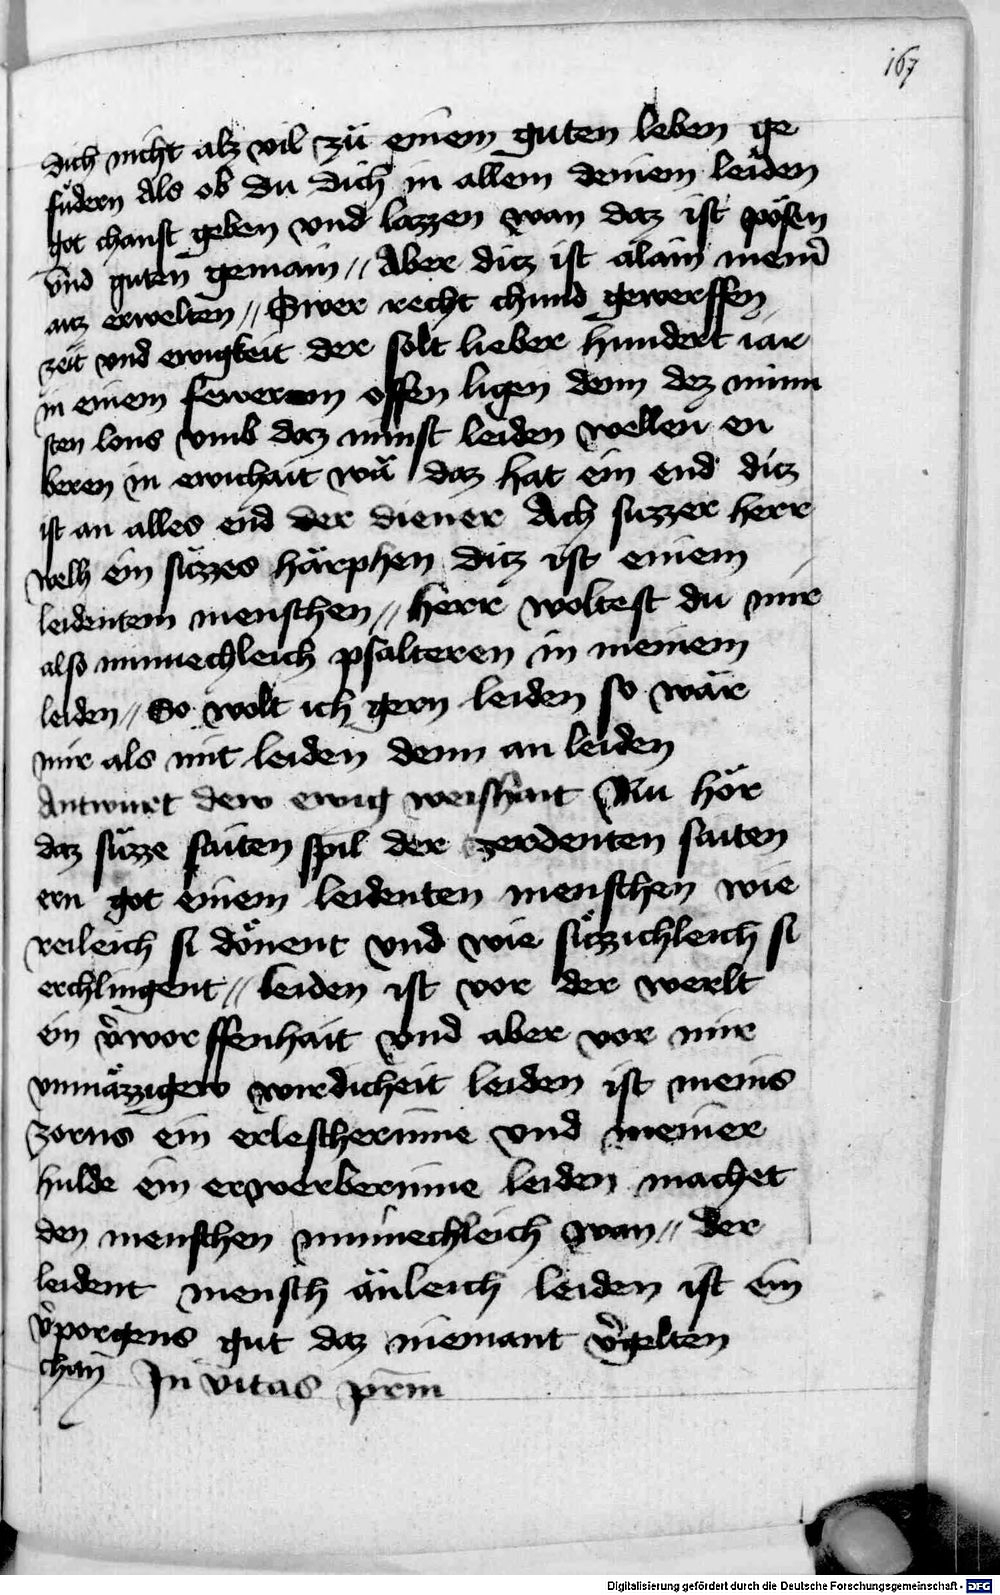 167
dich nicht alz vil zü einem guten leben ge
füdern Als ob du dich in allem deinem leiden
got chanst geben vnd lazzen wan daz ist pösen
vnd guten gemain // Aber ditz ist alain mein̄
auz erwelten // Swer recht chund gewerffen
zeit vnd ewigkeit der solt lieber hundert iar
in einem fewereinn offen ligen denn dez minn
sten lons vmb daz minst leiden wellen en
beren in ewichait wā daz hat ein end ditz
ist an alles end der diener Ach suzzer herr
welh ein süzzes härphen ditz ist einem
leidentem menschen // herr woltest du mir
also minnechleich psalteren in meinem
leiden // So wolt ich gern leiden so wär
mir als mit leiden denn an leiden
Antwurt dew ewig weishait Nu hör
daz süzze saiten spil der zerdenten saiten
ern got einem leidenten menschen wie
reileich si dönent vnd wie süzzichleich si
erchlingent // leiden ist vor der werlt
ein v̄worffenhait vnd aber vor mir
vnmäzzigew wirdicheit leiden ist meins
zorns ein erlescherinne vnd meiner
hulde ein erwerberinne leiden machet
den menschen minnechleich wan // der
leident mensch änleich leiden ist ein
v̄porgens gut daz niemant v̄gelten
chan In vitas prm̄
Digitalisierung gefördert durch die Deutsche Forschungsgemeinschaft - DFG